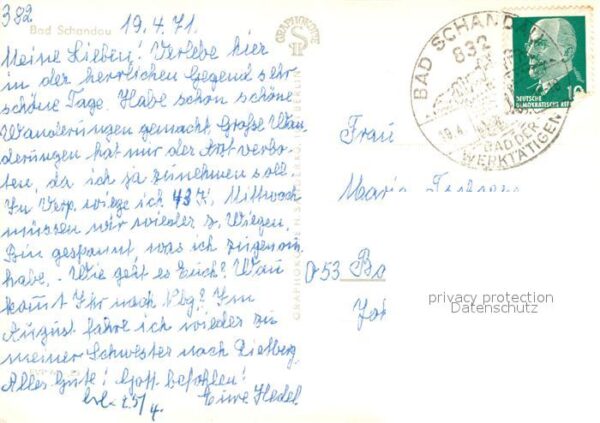 382
19.4.71.
Bad Schandau
Meine Lieben! Verlebe hier
in der herrlichen Gegend sehr
schöne Tage. Habe schon schöne
Wanderungen gemacht. Große Wan
derungen hat mir der Arzt verbo-
ten, da ich ja zunehmen soll.
wiege ich 43 K. Mittwoch
müssen wir wieder z. Wiegen.
Bin gespannt, was ich zugenom
habe. - Wie geht es Euch? Wan
kommt Ihr nach Rbg? Im
August fahre ich wieder zu
meiner Schwester nach
Alles Gute! Gott befohlen!
25/4. Eure Hedel
GRAPHOKOPIE
BERLIN
BAD SCHANDAU
832
19.4.
BAD DER
WERKTÄTIGEN
DEUTSCHE
DEMOKRATISCHE REP
10
Frau
Maria
53
privacy protection
Datenschutz